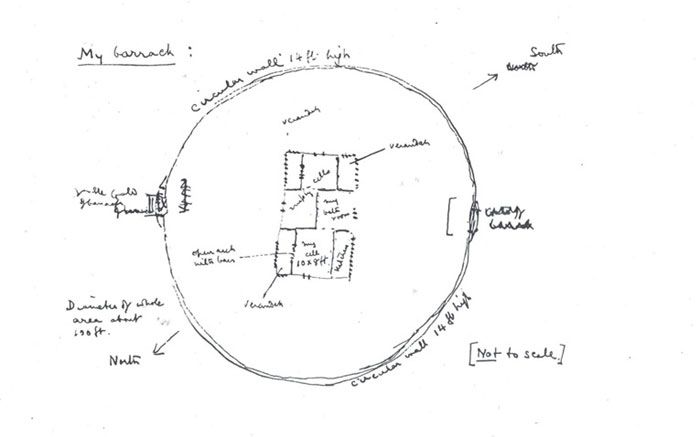 My barrack :
circular wall 14 ft. high
South
verandah
verandah
cells
my
bath
room
my
cell
10 x 8 ft
kitchen
open arch
with bars
verandah
barrack
Diameter of whole
area about
100 ft.
North
circular wall 14 ft high
[Not to scale.]